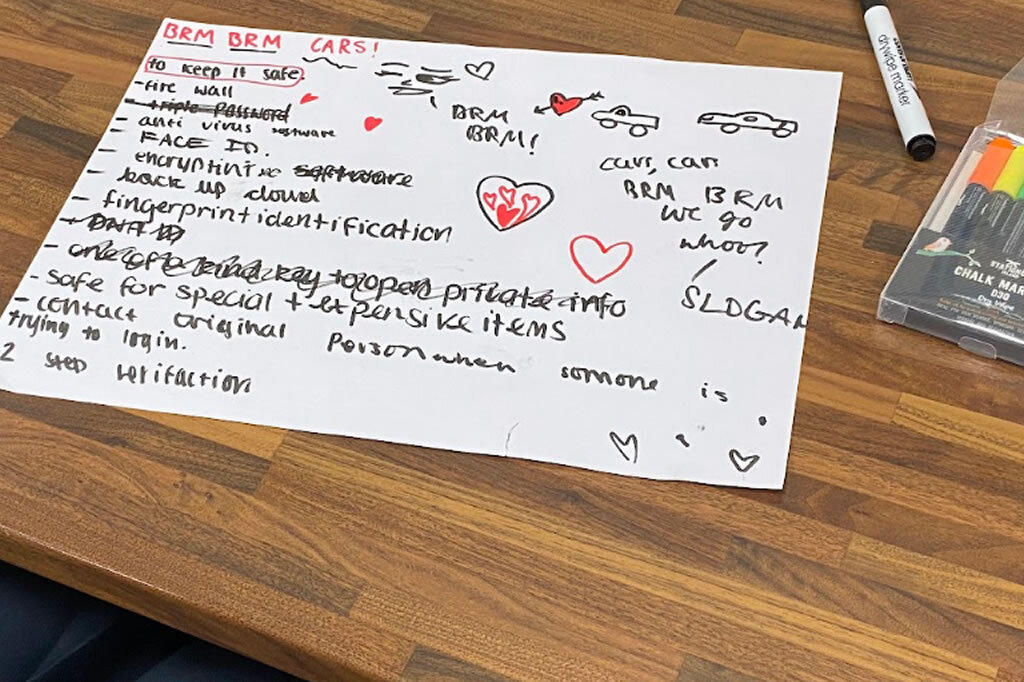 BRM BRM CARS!
to keep it safe.
- fire wall
- triple Password
- anti virus software
- FACE ID.
- encryptinic software
- back up cloud
- fingerprint identification
- DNA ID
- one of a kind key to open private info
- safe for special + expensive items
- contact original Person when somone is
trying to login.
2 step verifaction
BRM
BRM!
cars, cars
BRM BRM
we go
whoo?
SLOGAN
drywipe marker
CHALK MAR
030